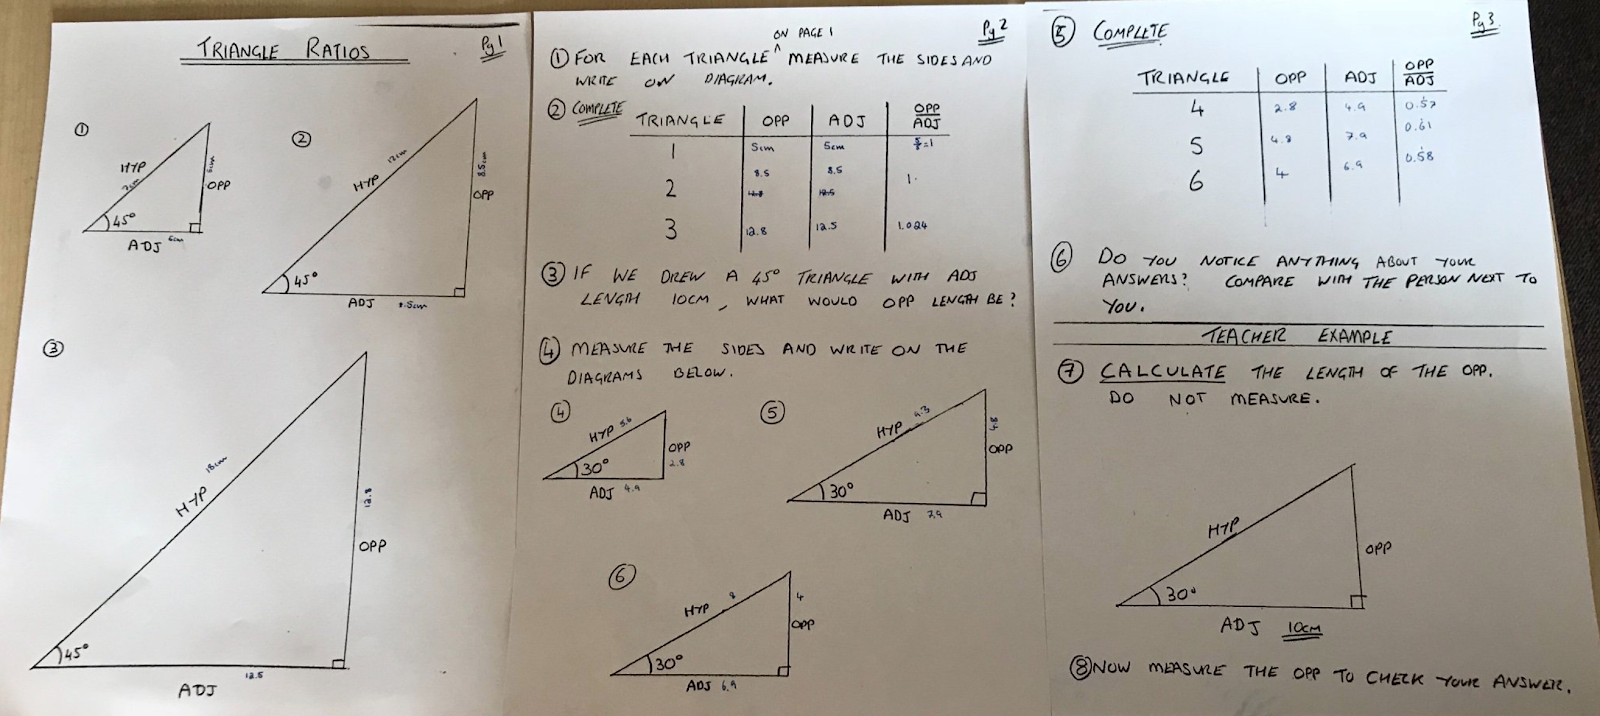 TRIANGLE RATIOS
Pg 1
①
HYP
7cm
5cm
OPP
45°
ADJ
②
HYP
12cm
8.5cm
OPP
45°
ADJ 8.5cm
③
HYP
18cm
12.8
OPP
45°
12.5
ADJ
Pg 2
① FOR EACH TRIANGLE ON PAGE 1 MEASURE THE SIDES AND
WRITE ON DIAGRAM.
② COMPLETE
TRIANGLE OPP ADJ OPP/ADJ
1 5cm 5cm 5/5=1
2 8.5 8.5 1.
12.8 12.5
3 12.8 12.5 1.024
③ IF WE DREW A 45° TRIANGLE WITH ADJ
LENGTH 10CM, WHAT WOULD OPP LENGTH BE?
④ MEASURE THE SIDES AND WRITE ON THE
DIAGRAMS BELOW.
④
HYP 5.6
OPP
2.8
30°
ADJ 4.9
⑤
HYP
4.8
OPP
30°
ADJ 7.9
⑥
HYP 8
4
OPP
30°
ADJ 6.9
Pg 3.
⑤ COMPLETE
TRIANGLE OPP ADJ OPP/ADJ
4 2.8 4.9 0.57
5 4.8 7.9 0.61
6 4 6.9 0.58
⑥ DO YOU NOTICE ANYTHING ABOUT YOUR
ANSWERS? COMPARE WITH THE PERSON NEXT TO
YOU.
TEACHER EXAMPLE
⑦ CALCULATE THE LENGTH OF THE OPP.
DO NOT MEASURE.
HYP
OPP
30°
ADJ 10CM
⑧ NOW MEASURE THE OPP TO CHECK YOUR ANSWER.